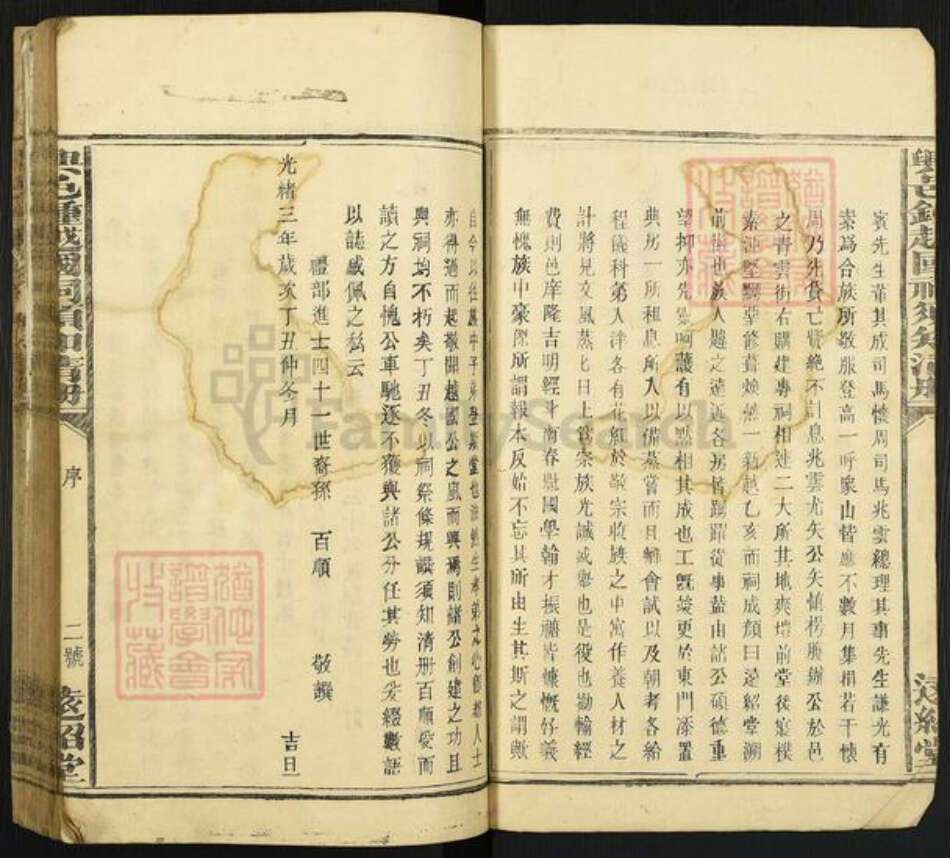 賓先生輩其成司馬懷周司馬兆雲總理其事先生謙光有
素爲合族所敬服登高一呼衆山皆應不數月集捐若干懷
周乃先貲亡貲絶不計息兆雲尤矢公矢愼楞賬辦公於邑
之青雲街右購建專祠相連二大所其地爽塏前堂後寢樸
素渾堅
前樹也族人趨之遠近各房皆踴躍從事蓋由諸公碩德重
望抑亦先靈呵護有以默相其成也工既竣更於東門添置
典房一所租息所入以備蒸嘗而且鄉會試以及朝考各給
程儀科第入泮各有花紅於敬宗收族之中寓作養人材之
計將見文風蒸蒸日上爲宗族光誠盛舉也是役也勸輸經
費則邑庠隆吉明經斗南春魁國學翰才振禧皆慷慨好義
無愧族中豪傑所謂報本反始不忘其所由生其斯之謂歟
自今以往族中子弟登斯堂也油然生孝弟之心
亦得過而起敬聞越國公之風而興焉則諸公創建之功且
與祠均不朽矣丁丑冬以祠祭條規譔須知清册百順愛而
讀之方自愧公車馳逐不獲與諸公分任其勞也爰綴數語
以誌感佩之私云
禮部進士四十一世裔孫 百順 敬譔
光緒三年歲次丁丑仲冬月 吉日
興邑鍾越國祠須知清册
序
二號
遠紹堂
興邑鍾越國祠須知清册
遠紹堂
FamilySearch